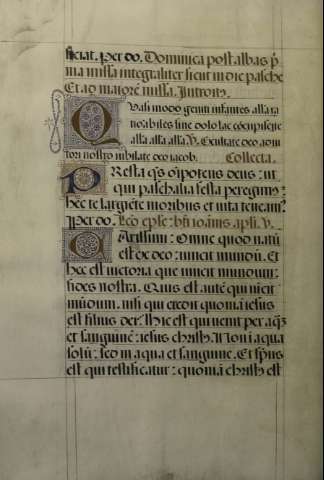 ficiat. Per do. Dominica post albas p̄
ma missa integraliter sicut in die pasche
Et ad maiorē missā. Introit₉.
Quasi modo geniti infantes alla ra
tiōabiles sine dolo lac cōcupiscite
alla alla alla. V̄. Exultate deo adiu
tori nostro iubilate deo iacob. Collecta.
Presta q̄s om̄potens deus: ut
qui paschalia festa peregim₉:
hec te largiēte moribus et uita teneam₉.
Per do. Lcō eplē: bt̄i ioānis apl̄i. V.
Carissimi: Omne quod natū
est ex deo: uincit mundū. Et
hec est uictoria que uincit mundum:
fides nostra. Quis est autē qui uicit
mūdum. nisi qui credit quoniā iesus
est filius dei? Hic est qui uenit per aquā
et sanguinē: iesus christ₉. Non i aqua
solū: sed in aqua et sanguine. Et sp̄us
est qui testificatur: quoniā christ₉ est